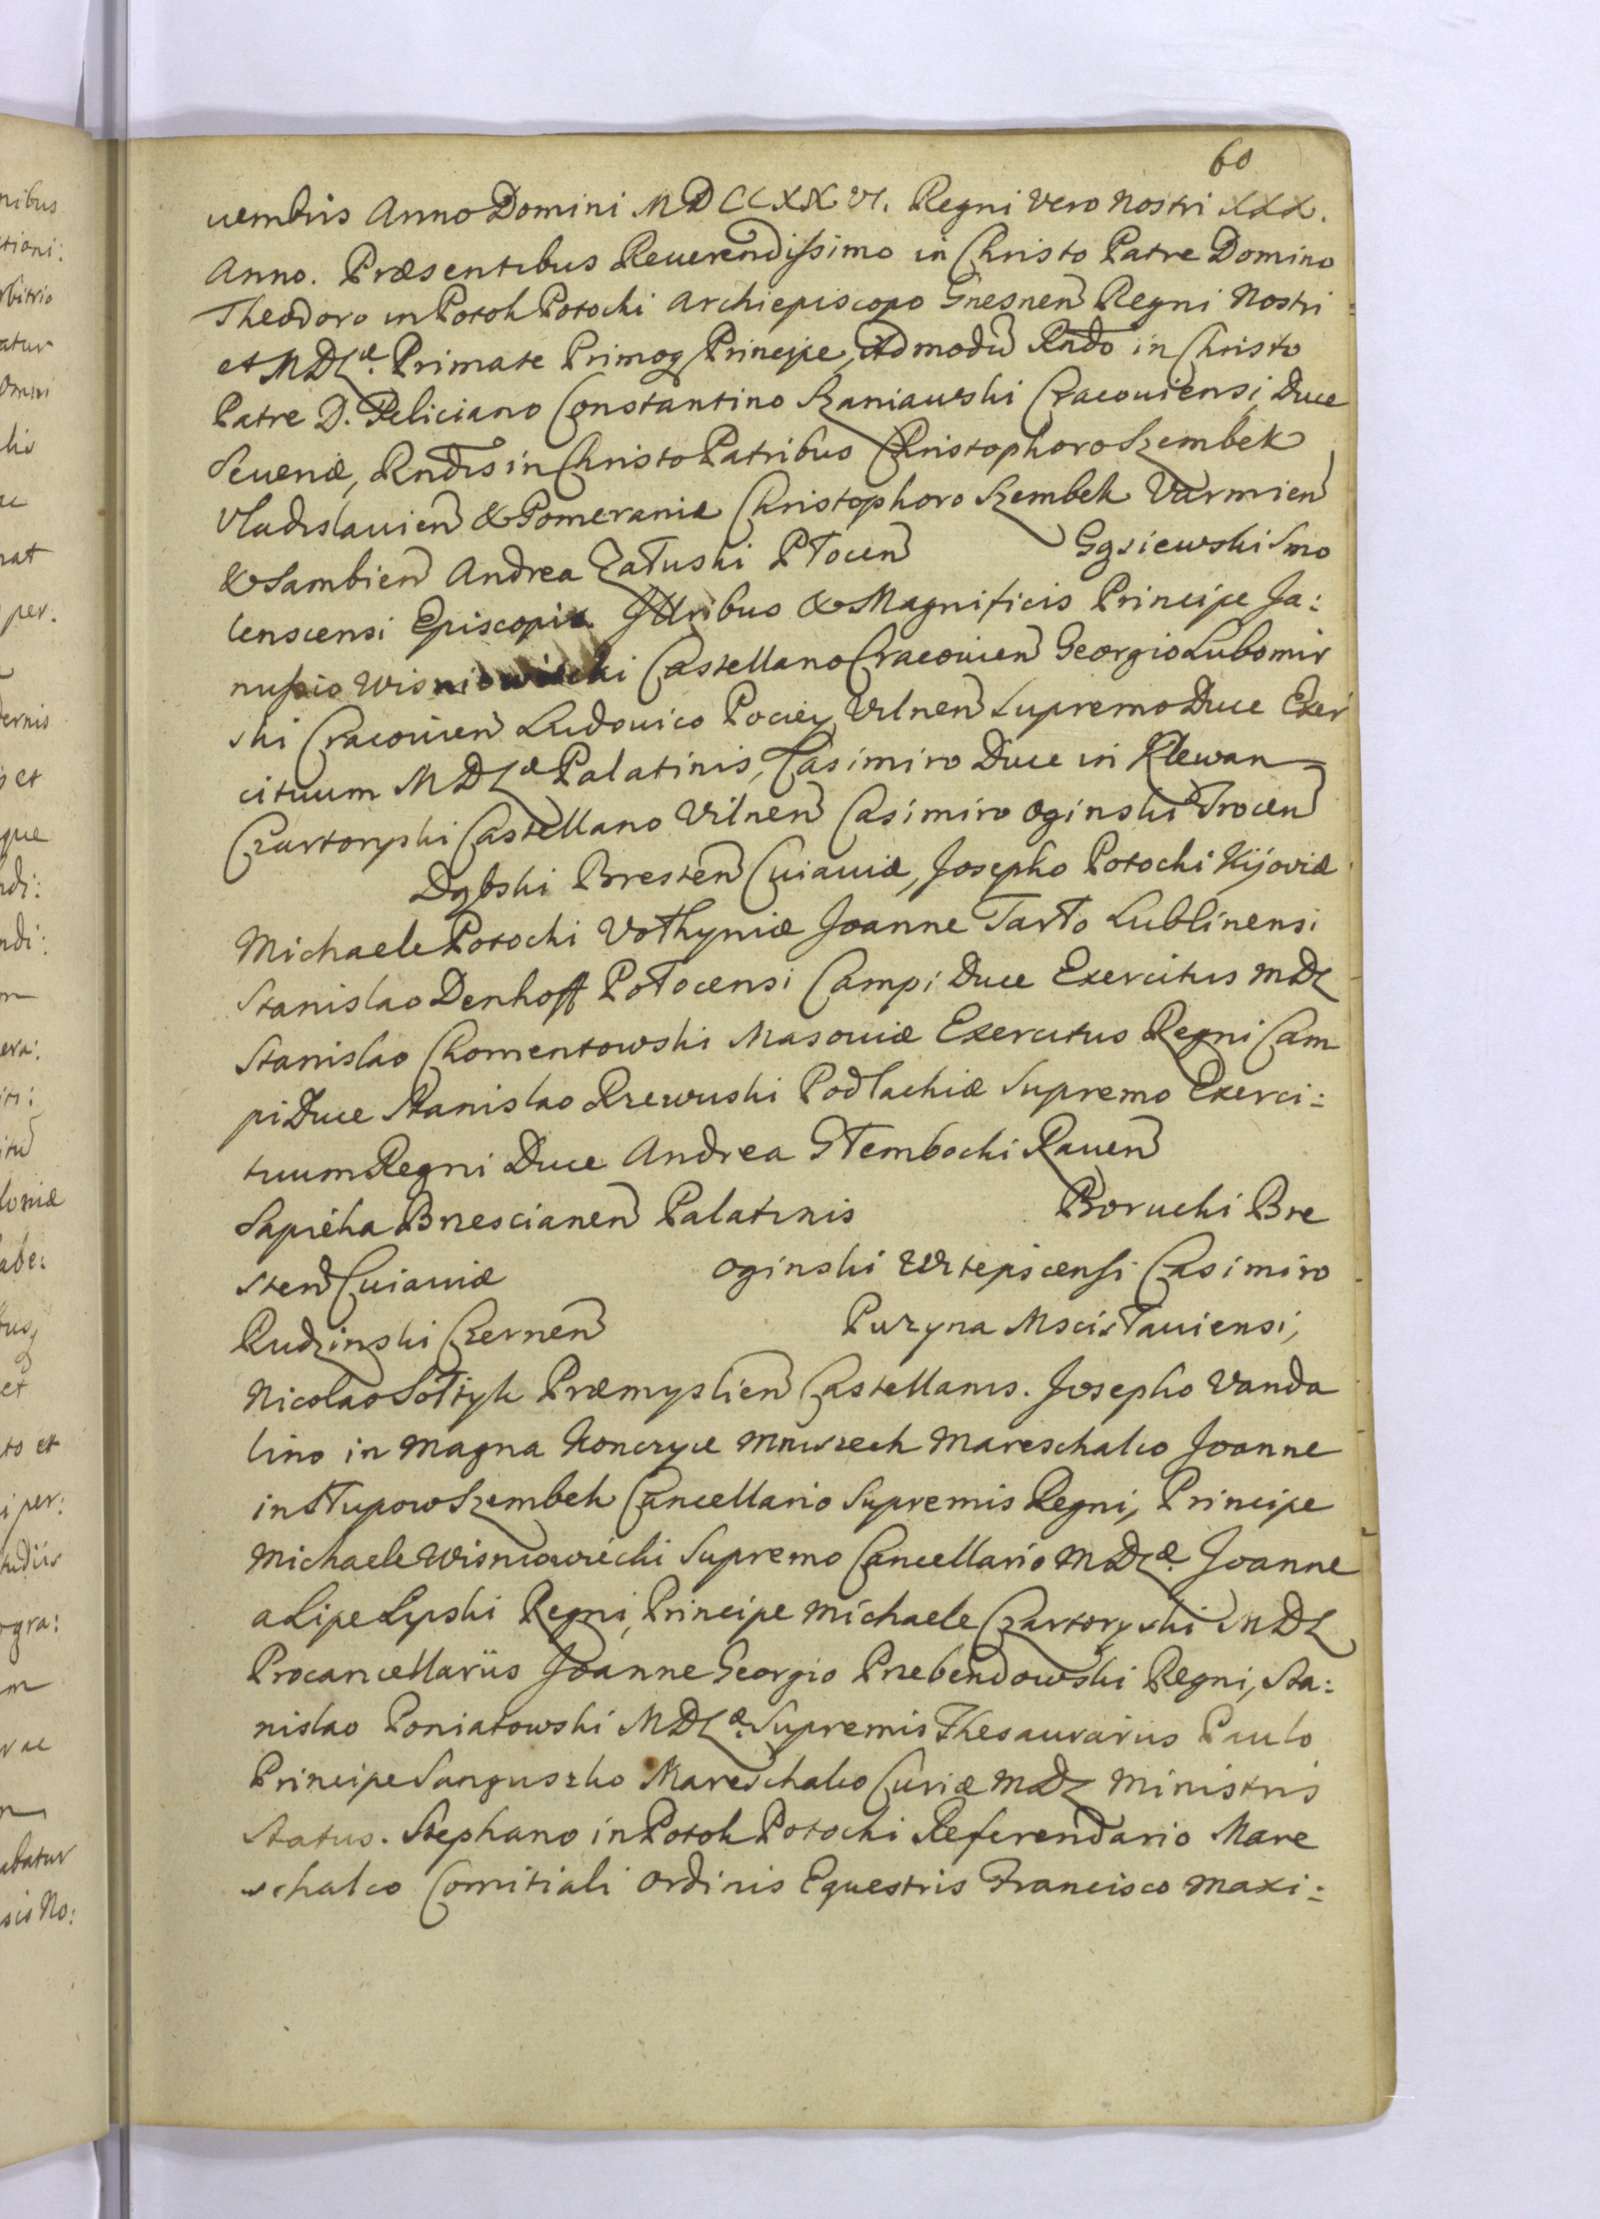 60
uembris Anno Domini MDCCXXVI. Regni Vero Nostri XXX.
Anno. Præsentibus Reuerendissimo in Christo Patre Domino
Theodoro in Potok Potocki Archiepiscopo Gnesnen Regni Nostri
et MDLæ. Primate Primoq Principe, Admodu Rndo in Christo
Patre D. Feliciano Constantino Szaniawski Cracouiensi, Duce
Seueriæ, Rndis in Christo Patribus Christophoro Szembek
Vladislauien & Pomeraniæ Christophoro Szembek Varmien
& Sambien Andrea Załuski Płocen Gąsiewski Smo
lenscensi Episcopis. Illribus & Magnificis Principe Ja:
nussio Wisniowiecki Castellano Cracouien Georgio Lubomir
ski Cracouien Ludouico Pociey Vilnen Supremo Duce Exer
cituum MDLæ Palatinis, Casimiro Duce in Klewan
Czartoryski Castellano Vilnen Casimiro Oginski Trocen
Dąbski Bresten Cuiauiæ, Josepho Potocki Kijoviæ
Michaele Potocki Vołhyniæ Joanne Tarło Lublinensi
Stanislao Denhoff Połocensi Campi Duce Exercitus MDL
Stanislao Chomentowski Masouiæ Exercitus Regni Cam
pi Duce Stanislao Rzewuski Podlachiæ Supremo Exerci:
tuum Regni Duce Andrea Głembocki Rauen
Sapieha Brzescianen Palatinis Borucki Bre
sten Cuiauiæ Oginski Witepscensi Casimiro
Rudzinski Czernen Puzyna Mscisłauiensi,
Nicolao Sołtyk Præmyslien Castellanis. Josepho Vanda
lino in Magna Konczyce Mniszech Mareschalco Joanne
in Słupow Szembek Cancellario Supremis Regni, Principe
Michaele Wisniowiecki Supremo Cancellario MDLæ. Joanne
a Lipe Lipski Regni, Principe Michaele Czartoryski MDL
Procancellariis Joanne Georgio Przebendowski Regni, Sta:
nislao Poniatowski MDLæ. Supremis Thesaurariis Paulo
Principe Sanguszko Mareschalco Curiæ MDL Ministris
Status. Stephano in Potok Potocki Referendario Mare
schalco Comitiali Ordinis Equestris Francisco Maxi: